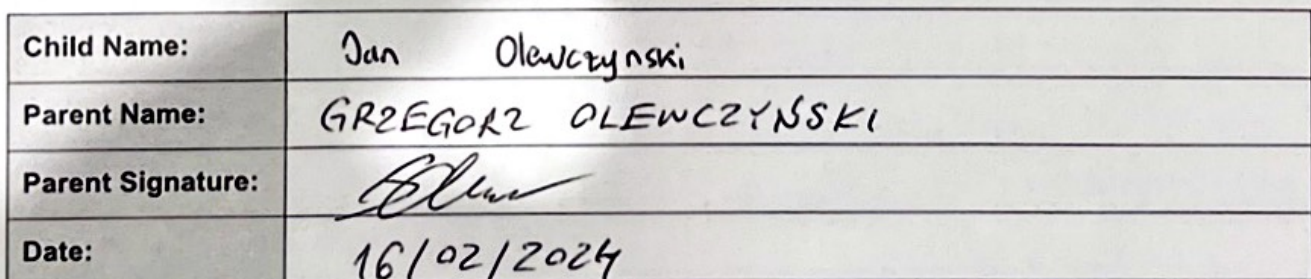 Child Name: Jan Olewczynski
Parent Name: GRZEGORZ OLEWCZYŃSKI
Parent Signature:
Date: 16/02/2024